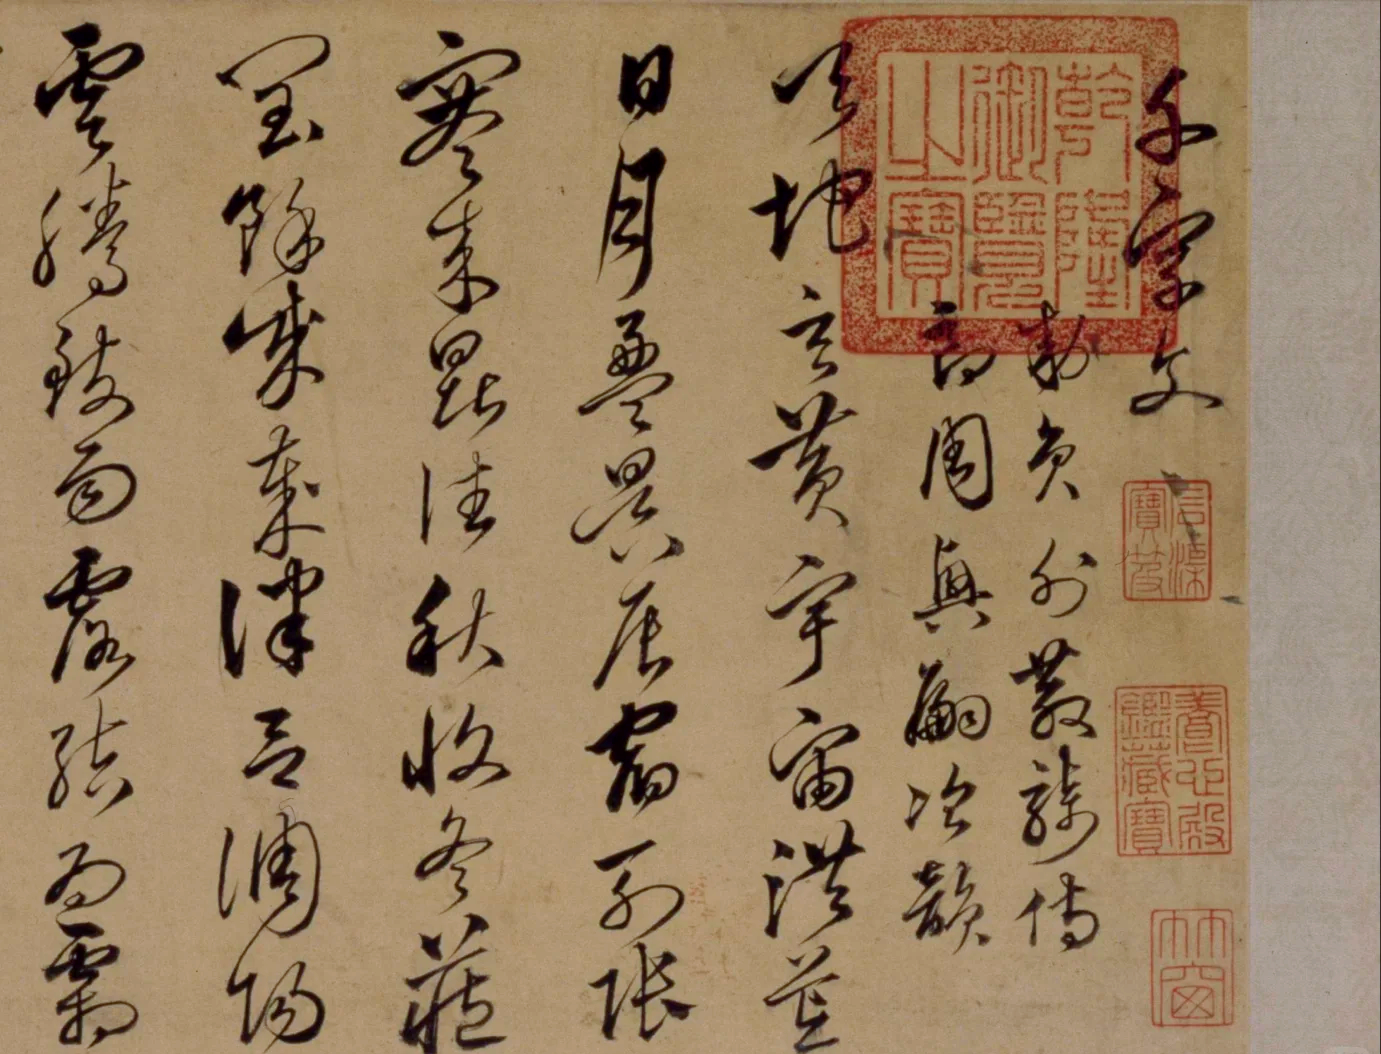 千字文
乾隆御覽之寶
石渠寶笈
養心殿鑑藏寶
竹窗
勅員外散騎侍
郎周興嗣次韻
天地玄黃宇宙洪荒
日月盈昃辰宿列張
寒來暑往秋收冬藏
閏餘成歲律呂調陽
雲騰致雨露結為霜